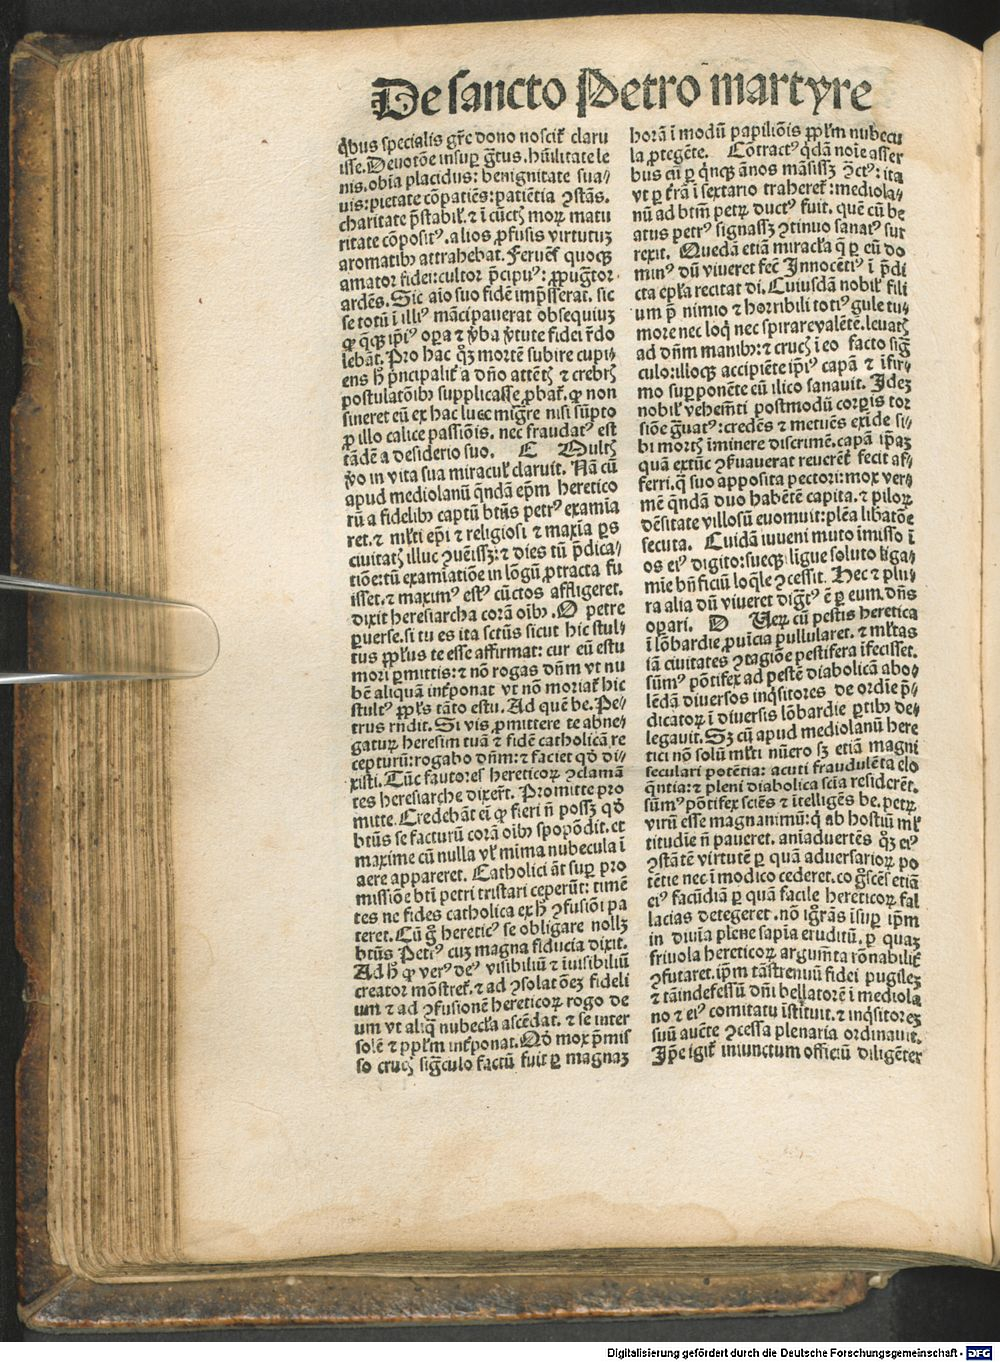 De sancto Petro martyre
q̇bus specialis gr̄e dono noscit᷑ claru
isse. Deuotōe insuꝑ gr̄tus. hūilitate le
nis. obīa placidus: benignitate sua⸗
uis: pietate cōpatiēs: patiētia ꝯstās.
charitate p̄stabil᷑. ⁊ ī cūctꝭ moꝝ matu
ritate cōposit⁹. alios ꝓfusis virtutuꝫ
aromatibꝰ attrahebat. Feruēs quoqꝫ
amator fidei: cultor p̄cipu⁹: ꝓpugtor
ardēs. Sic aīo suo fidē imp̄sserat. sic
se totū ī illi⁹ mācipauerat obsequiuꝫ
ꝙ q̇cqꝫ ip̄i⁹ oꝑa ⁊ v̄ba v̄tute fidei r̄do
lebāt. Pro hac qꝫ mortē subire cupi⸗
ens h̄ p̄ncipalit᷑ a dn̄o attētꝭ ⁊ crebrꝭ
postulatōibꝰ supplicasse ꝓbat᷑. ꝙ non
sineret eū ex hac luce migr̄e nisi sūpto
ꝓ illo calice passiōis. nec fraudat⁹ est
tādē a desiderio suo. C Multꝭ
v̄o in vita sua miracul᷑ claruit. Nā cū
apud mediolanū qūdā ep̄m heretico
rū a fidelibꝰ captū bt̄us petr⁹ examīa
ret. ⁊ ml̄ti ep̄i ⁊ religiosi ⁊ maxīa ꝑs
ciuitatꝭ illuc ꝯuēissꝫ: ⁊ dies tū p̄dica⸗
tiōe: tū examīatiōe in lōgū ꝓtracta fu
isset. ⁊ maxim⁹ est⁹ cūctos affligeret.
dixit heresiarcha corā oībꝰ. O petre
ꝑuerse. si tu es ita sct̄us sicut hic stul⸗
tus ꝓpl̄us te esse affirmat: cur eū estu
mori ꝑmittis: ⁊ nō rogas dn̄m vt nu
bē aliquā int̄ponat vt nō moriat᷑ hic
stult⁹ ꝓpl̄s tāto estu. Ad quē be. Pe⸗
trus rn̄dit. Si vis ꝓmittere te abne⸗
gaturꝝ heresim tuā ⁊ fidē catholicā re
cepturū: rogabo dn̄m: ⁊ faciet qd̄ di⸗
xisti. Tūc fautores hereticoꝝ ꝯclamā
tes heresiarche dixer̄t. Promitte pro
mitte. Credebāt eī ꝙ fieri n̄ possꝫ qd̄
bt̄us se facturū corā oībꝰ spopōdit. et
maxime cū nulla vl᷑ mīma nubecula ī
aere appareret. Catholici āt suꝑ pro
missiōe bt̄i petri tristari ceperūt: timē
tes ne fides catholica ex h̄ ꝯfusiōi pa
teret. Cū g̊ heretic⁹ se obligare nollꝫ
bt̄us Petr⁹ cuꝫ magna fiducia dixit.
Ad h̄ ꝙ ver⁹ de⁹ visibiliū ⁊ īuisibiliū
creator mōstret᷑. ⁊ ad ꝯsolatōeꝫ fideli
um ⁊ ad ꝯfusionē hereticoꝝ rogo de
um vt aliq̄ nubecl̄a ascēdat. ⁊ se inter
solē ⁊ ꝓpl̄m int̄ponat. Qd̄ mox p̄mis
so crucꝭ siḡculo factū fuit ꝑ magnaꝫ
horā ī modū papiliōis ꝓpl̄m nubecu
la ꝓtegēte. Cōtract⁹ q̇dā noīe asser
bus cū ꝑ q̇nqꝫ ānos māsissꝫ ꝯct⁹: ita
vt ꝑ t̄rā ī sextario traheret᷑: mediola⸗
nū ad bt̄m petꝝ duct⁹ fuit. quē cū be
atus petr⁹ signassꝫ ꝯtinuo sanat⁹ sur
rexit. Quedā etiā miracl̄a q̄ ꝑ eū do
min⁹ dū viueret fec̄ Innocēti⁹ ī p̄di
cta ep̄la recitat di. Cuiusdā nobil᷑ fili
um p̄ nimio ⁊ horribili toti⁹ gule tu⸗
more nec loq̇ nec spirare valētē. leuatꝭ
ad dn̄m manibꝰ: ⁊ crucꝭ ī eo facto siḡ
culo: illoqꝫ accipiēte ip̄i⁹ capā ⁊ īfir⸗
mo suꝑponēte eū ilico sanauit. Ideꝫ
nobil᷑ vehemēti postmodū corꝑis tor
siōe gͣuat⁹: credēs ⁊ metuēs exīde si⸗
bi mortꝭ īminere discrimē. capā ip̄aꝫ
quā extūc ꝯẜuauerat reuerēt᷑ fecit af⸗
ferri. q̄ suo apposita pectori: mox ver⸗
mē qūdā duo habētē capita. ⁊ piloꝝ
dēsitate villosū euomuit: plēa libatōe
secuta. Cuidā iuueni muto īmisso ī
os ei⁹ digito: sueqꝫ līgue soluto liga⸗
mīe bn̄ficiū loq̄le ꝯcessit. Hec ⁊ plu⸗
ra alia dū viueret digt⁹ ē ꝑ eum dn̄s
oꝑari. D Ueꝝ cū pestis heretica
ī lōbardie ꝓuīcia pullularet. ⁊ ml̄tas
iā ciuitates ꝯtagiōe pestifera īfecisset.
sūm⁹ pōtifex ad pestē diabolicā abo⸗
lēdā diuersos inq̇sitores de ordīe p̄⸗
dicatoꝝ ī diuersis lōbardie ꝑtibꝰ de⸗
legauit. Sꝫ cū apud mediolanū here
tici nō solū ml̄ti nūero sꝫ etiā magni
seculari potētia: acuti fraudulēta elo
q̄ntia: ⁊ pleni diabolica scīa resideret.
sūm⁹ pōtifex sciēs ⁊ ītelligēs be. petꝝ
virū esse magnanimū: q̇ ab hostiū ml̄
titudīe n̄ paueret. aīaduertēs qꝫ ei⁹
ꝯstātē virtutē ꝑ quā aduersarioꝝ po
tētie nec ī modico cederet. cogͦscēs etiā
ei⁹ facūdiā ꝑ quā facile hereticoꝝ fal
lacias detegeret. nō igͦrās īsuꝑ ip̄m
in diuīa plene sapīa eruditū. ꝑ quaꝫ
friuola hereticoꝝ argumta rōnabilit᷑
ꝯfutaret. ip̄m tā strenuū fidei pugileꝫ
⁊ tā indefessū dn̄i bellatorē ī mediola
no ⁊ ei⁹ comitatu īstituit. ⁊ inq̇sitoreꝫ
suū auc̄te ꝯcessa plenaria ordinauit.
Ip̄e igit᷑ iniunctum officiū diligēter
Digitalisierung gefördert durch die Deutsche Forschungsgemeinschaft - DFG